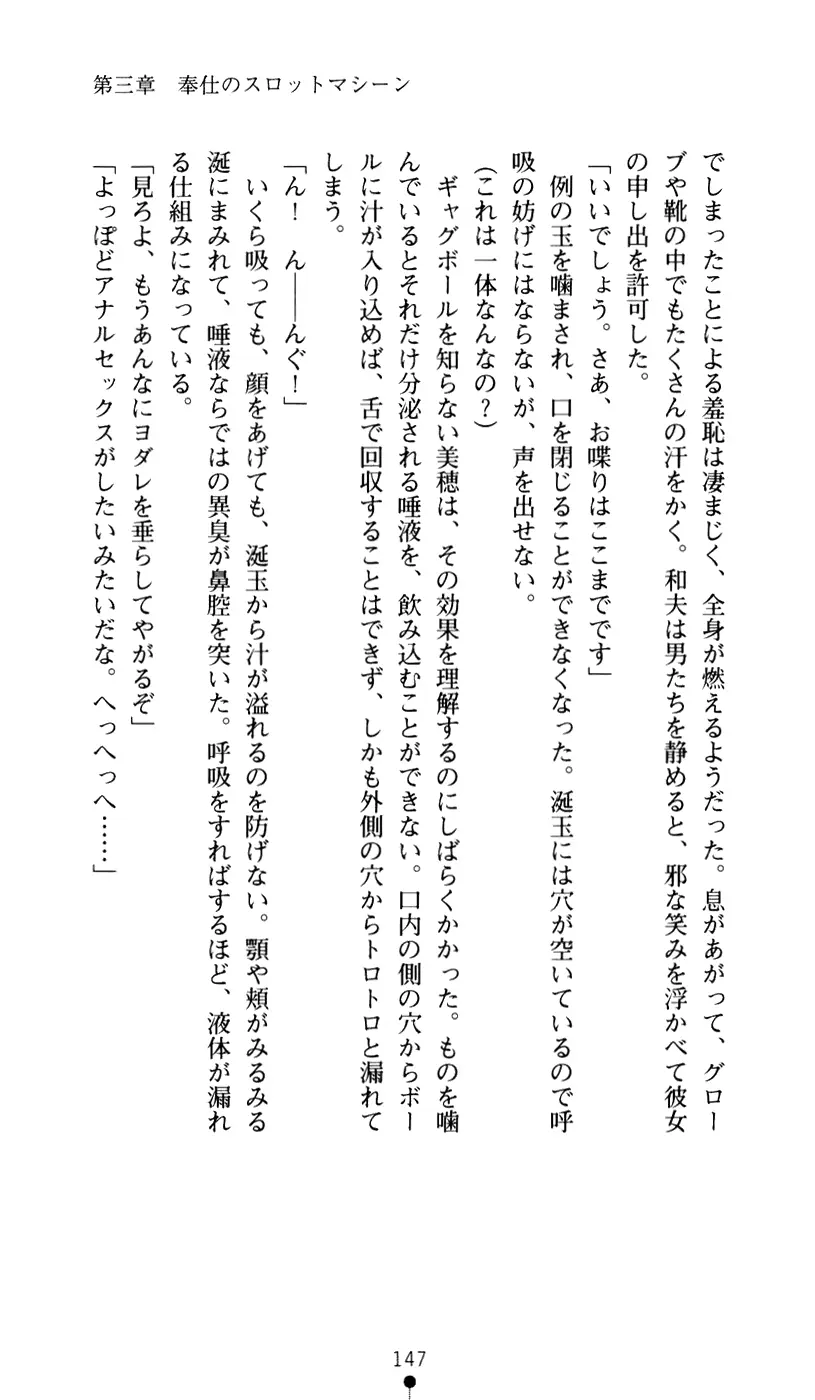 第三章　奉仕のスロットマシーン
でしまったことによる羞恥は凄まじく、全身が燃えるようだった。息があがって、グロー
ブや靴の中でもたくさんの汗をかく。和夫は男たちを静めると、邪な笑みを浮かべて彼女
の申し出を許可した。
「いいでしょう。さあ、お喋りはここまでです」
　例の玉を噛まされ、口を閉じることができなくなった。涎玉には穴が空いているので呼
吸の妨げにはならないが、声を出せない。
（これは一体なんなの？）
　ギャグボールを知らない美穂は、その効果を理解するのにしばらくかかった。ものを噛
んでいるとそれだけ分泌される唾液を、飲み込むことができない。口内の側の穴からボー
ルに汁が入り込めば、舌で回収することはできず、しかも外側の穴からトロトロと漏れて
しまう。
「ん！　ん――んぐ！」
　いくら吸っても、顔をあげても、涎玉から汁が溢れるのを防げない。顎や頬がみるみる
涎にまみれて、唾液ならではの異臭が鼻腔を突いた。呼吸をすればするほど、液体が漏れ
る仕組みになっている。
「見ろよ、もうあんなにヨダレを垂らしてやがるぞ」
「よっぽどアナルセックスがしたいみたいだな。へっへっへ……」
147